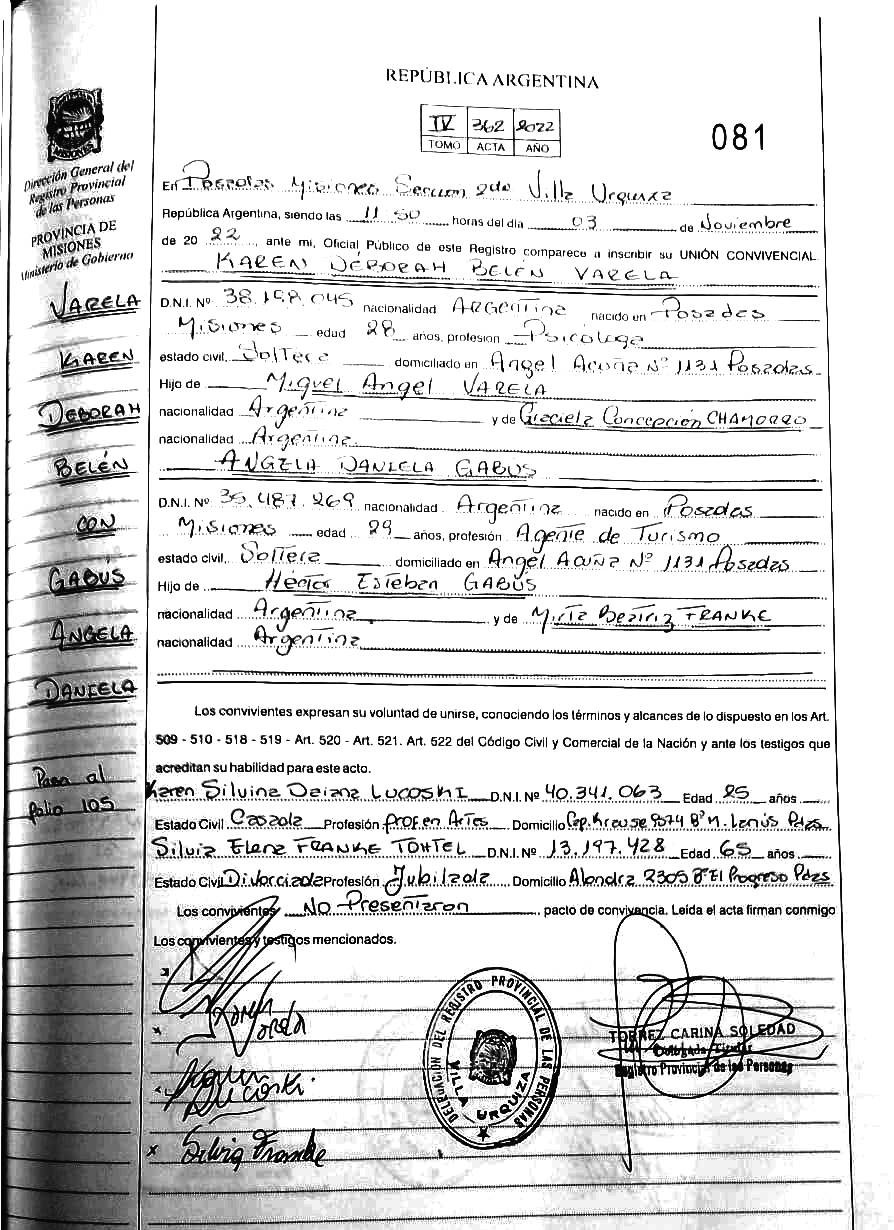 REPÚBLICA ARGENTINA
IV 362 2022
TOMO ACTA AÑO
081
MISIONES
Dirección General del
Registro Provincial
de las Personas
PROVINCIA DE
MISIONES
Ministerio de Gobierno
VARELA
KAREN
DEBORAH
BELÉN
CON
GABÚS
ANGELA
DANIELA
Pasa al
folio 105
En Posadas Misiones Sección 2da Villa Urquiza
República Argentina, siendo las 11 50 horas del día 03 de Noviembre
de 20 22, ante mi, Oficial Público de este Registro comparece a inscribir su UNIÓN CONVIVENCIAL
KAREN DEBORAH BELEN VARELA
D.N.I. Nº 38.198.045 nacionalidad Argentina nacido en Posadas
Misiones edad 28 años, profesión Psicologa
estado civil Soltera domiciliado en Angel Acuña Nº 1131 Posadas
Hijo de Miguel Angel VARELA
nacionalidad Argentina y de Graciela Concepción CHAMORRO
nacionalidad Argentina
ANGELA DANIELA GABUS
D.N.I. Nº 36.487.269 nacionalidad Argentina nacido en Posadas
Misiones edad 29 años, profesión Agente de Turismo
estado civil Soltera domiciliado en Angel Acuña Nº 1131 Posadas
Hijo de Hector Esteban GABÚS
nacionalidad Argentina y de Mirta Beatriz FRANKE
nacionalidad Argentina
Los convivientes expresan su voluntad de unirse, conociendo los términos y alcances de lo dispuesto en los Art.
509 - 510 - 518 - 519 - Art. 520 - Art. 521. Art. 522 del Código Civil y Comercial de la Nación y ante los testigos que
acreditan su habilidad para este acto.
Karen Silvina Daiana LUCOSKI D.N.I. Nº 40.341.063 Edad 25 años
Estado Civil Casada Profesión Prof en Artes Domicilio Cap. Krause 8574 Bº N. Lenús Pdas
Silvia Elena FRANKE TOHTEL D.N.I. Nº 13.197.428 Edad 65 años
Estado Civil Divorciada Profesión Jubilada Domicilio Alondra 2305 Bº El Progreso Pdas
Los convivientes No Presentaron pacto de convivancia. Leída el acta firman conmigo
Los convivientes y testigos mencionados.
Karen
Varela
Karen
Lucoski
Silvia Franke
DELEGACIÓN DEL REGISTRO PROVINCIAL DE LAS PERSONAS
VILLA URQUIZA
TORREZ CARINA SOLEDAD
Delegada Titular
Registro Provincial de las Personas